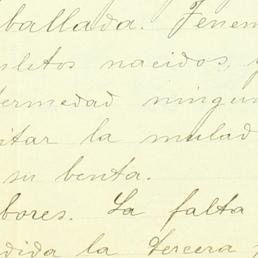 ballada. Tenem
uletos nacidos, y
fermedad ningun
itar la mulad
su benta.
bores. La falta
dida la tercera